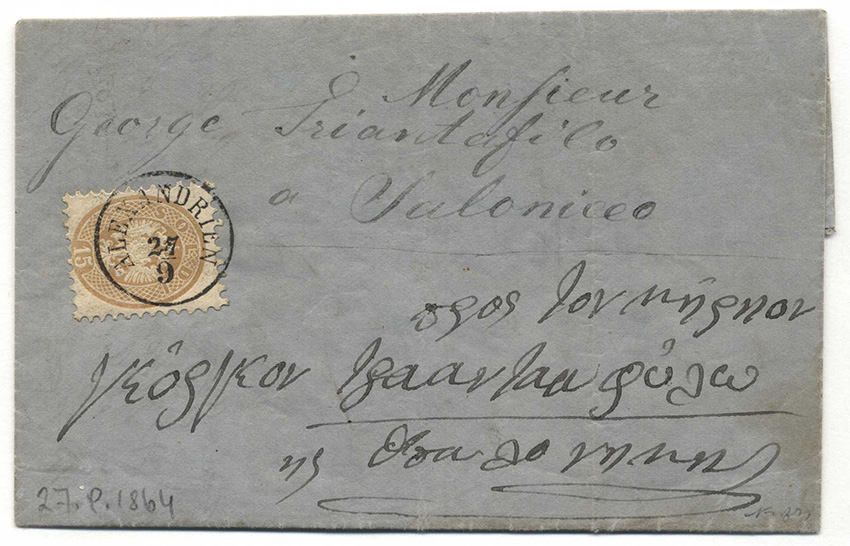 Monsieur
George Triantafilo
a Saloniceo
ALEXANDRIEN
27
9
15
προς τον κηρηον
γκεόργκον τραανταφύλω
ης Θεσαλονηκη
27.9.1864